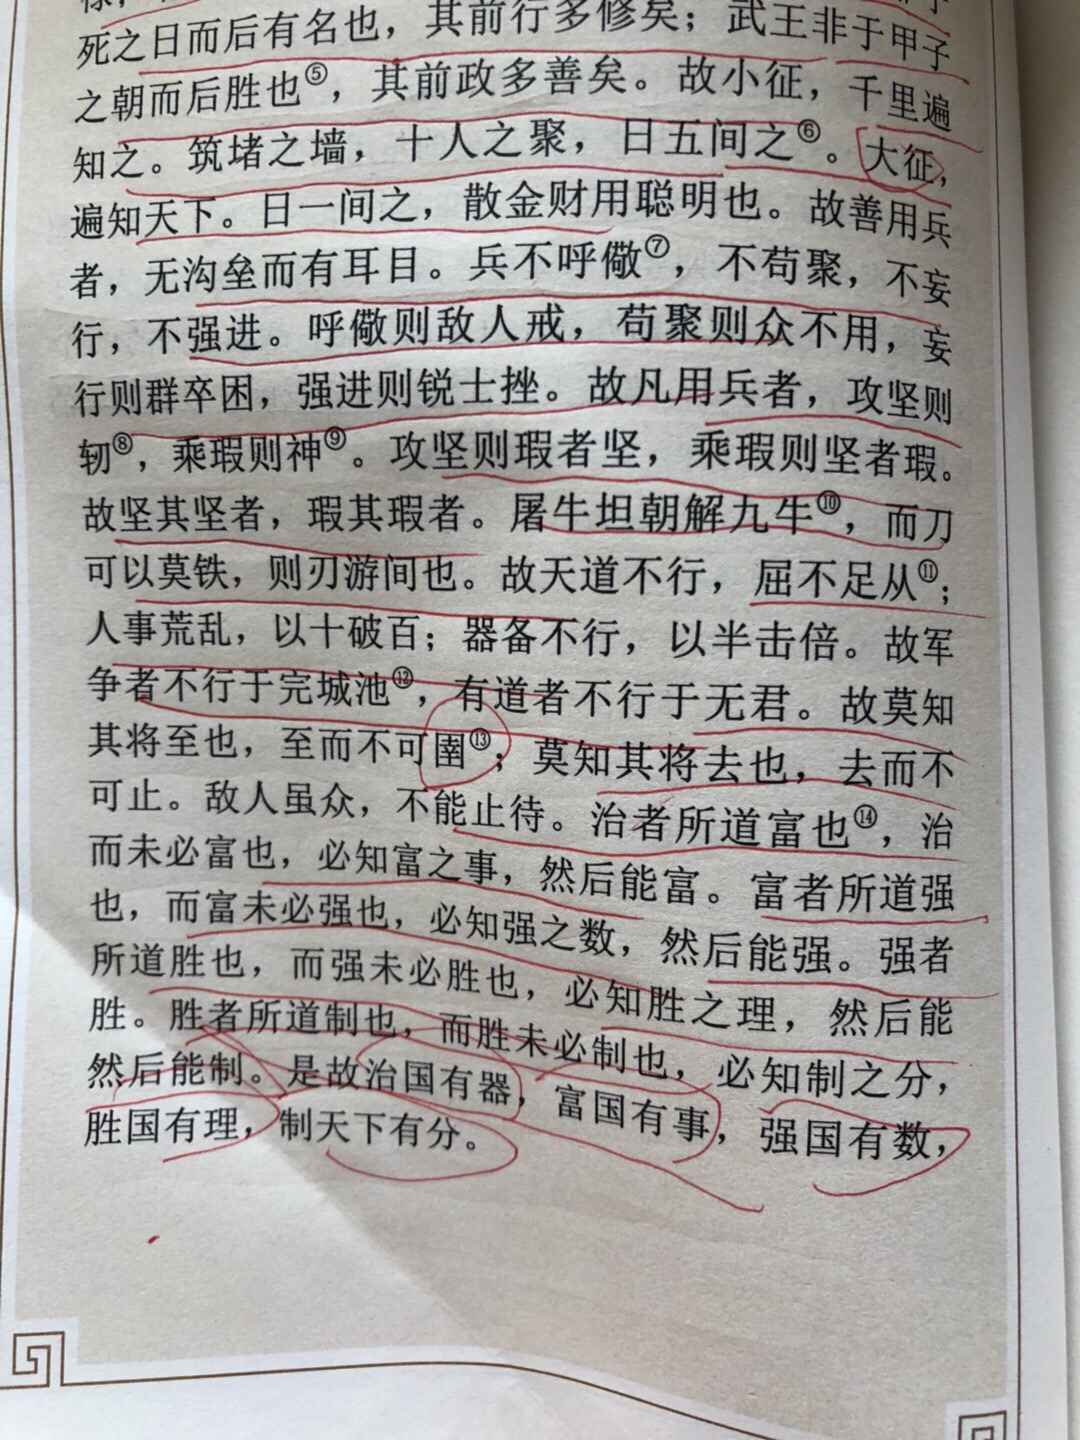 死之日而后有名也，其前行多修矣；武王非于甲子
之朝而后胜也⑤，其前政多善矣。故小征，千里遍
知之。筑堵之墙，十人之聚，日五间之⑥。大征，
遍知天下。日一间之，散金财用聪明也。故善用兵
者，无沟垒而有耳目。兵不呼儆⑦，不苟聚，不妄
行，不强进。呼儆则敌人戒，苟聚则众不用，妄
行则群卒困，强进则锐士挫。故凡用兵者，攻坚则
轫⑧，乘瑕则神⑨。攻坚则瑕者坚，乘瑕则坚者瑕。
故坚其坚者，瑕其瑕者。屠牛坦朝解九牛⑩，而刀
可以莫铁，则刃游间也。故天道不行，屈不足从⑪；
人事荒乱，以十破百；器备不行，以半击倍。故军
争者不行于完城池⑫，有道者不行于无君。故莫知
其将至也，至而不可圉⑬；莫知其将去也，去而不
可止。敌人虽众，不能止待。治者所道富也⑭，治
而未必富也，必知富之事，然后能富。富者所道强
也，而富未必强也，必知强之数，然后能强。强者
所道胜也，而强未必胜也，必知胜之理，然后能
胜。胜者所道制也，而胜未必制也，必知制之分，
然后能制。是故治国有器，富国有事，强国有数，
胜国有理，制天下有分。